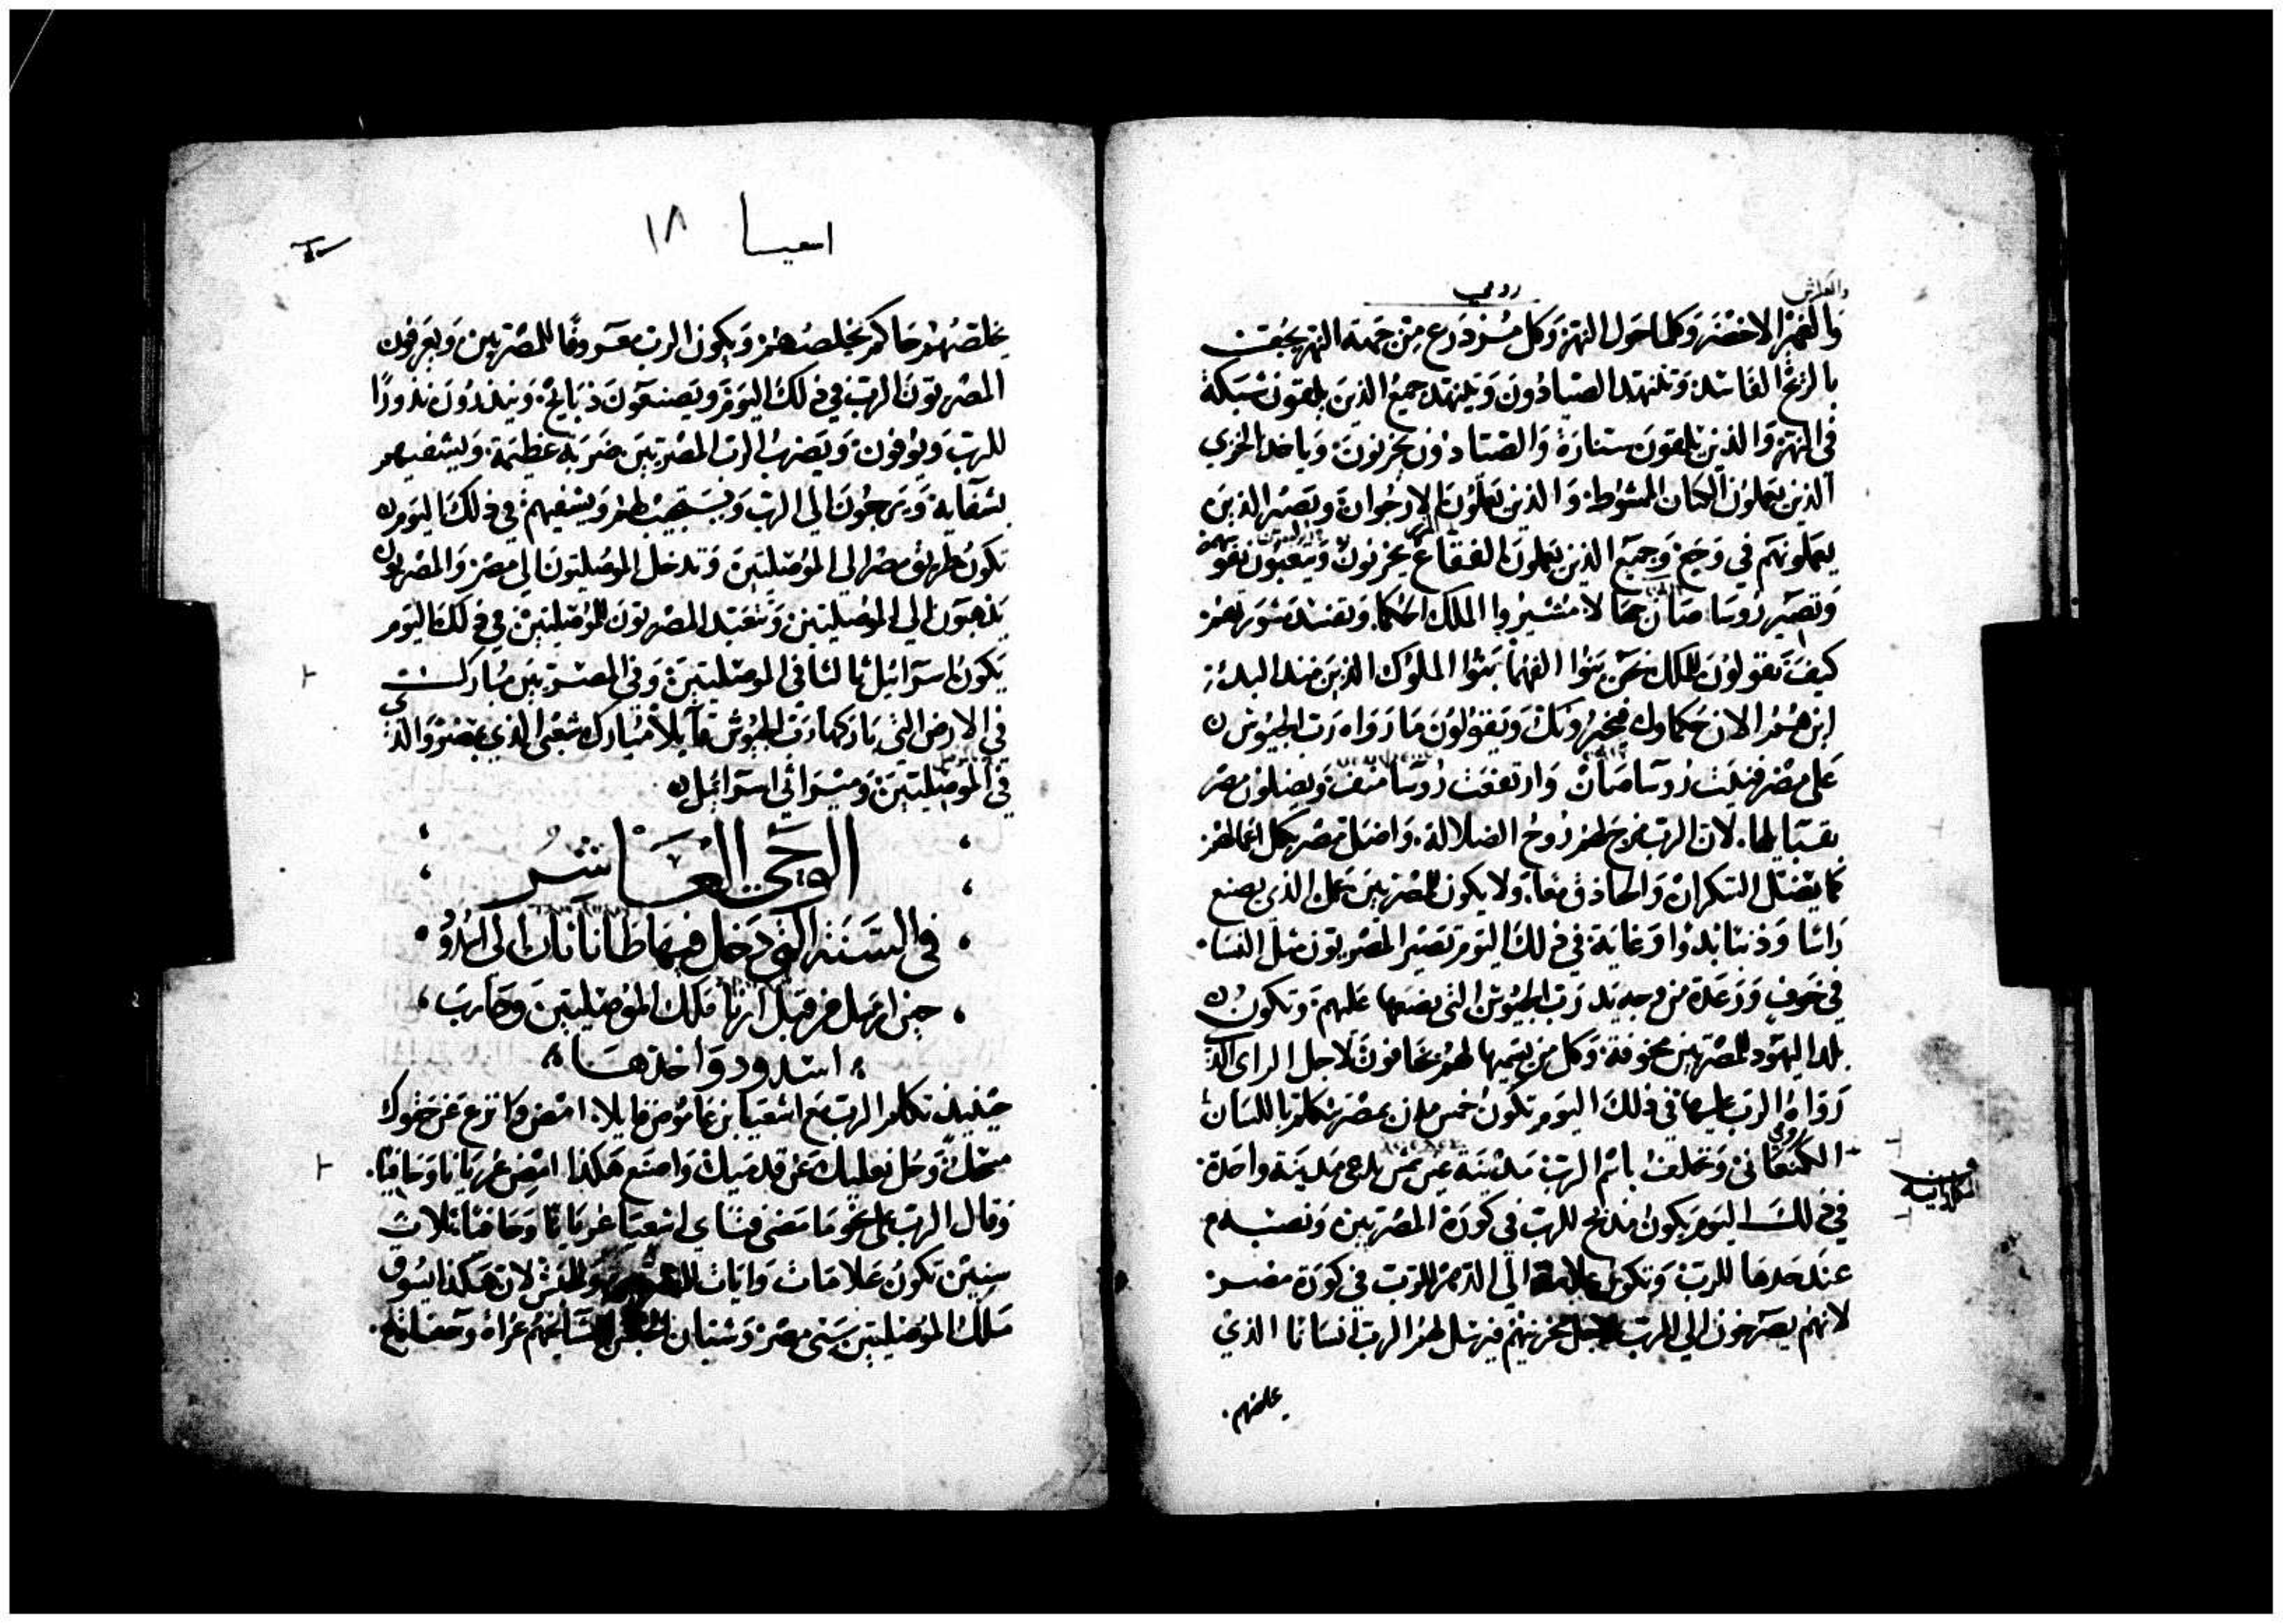 رومي
والعراش
والغمر الاخضر وكلما حول النهر وكل مزدرع من جهة النهر يجفف
بالريح الفاسد وتلتهد الصيادون ويتنهد جميع الذين يلقون شبكة
في النهر والذين يلقون سنارة والصيادون يحزنون وياخد الخزي
الذين يعملون الكتان المشوط والذين يعملون الارجوان ويصير الذين
يعملونهم في وجع وجميع الذين يعملون الفقاع يحزنون ويتعبون نفوسهم
وتصير روسا صان جها لا مشيروا الملك الحكما وتفسد مشورتهم
كيف تقولون للملك نحن بنوا الفهما بنوا الملوك الذين منذ البدء
اين هم الان حكماوك فيخبرونك ويقولون ما رواه رب الجيوش
على مصر فنيت روسا صان وارتفعت روسا منف ويضلون مصر
بقبايلها لان الرب مزج لهم روح الضلالة واضل مصر بكل اعمالهم
كما يضل السكران والحاذق معا ولا يكون للمصريين عمل الذي يصنع
راسا وذنبا بدوا وغاية في ذلك اليوم تصير المصريون مثل النسا
في خوف ورعدة من وجه يد رب الجيوش التي يضعها عليهم وتكون
بلد اليهود للمصريين مخوفة وكل من يسميها لهم يخافون لاجل الراي الذي
رواه الرب عليها في ذلك اليوم تكون خمس مدن بمصر يتكلم باللسان
الكنعاني وتحلف باسم الرب مدينة عين شمس يدعى مدينة واحدة
في ذلك اليوم يكون مذبح للرب في كورة المصريين ونصبه
عند حدها للرب وتكون علامة الى الدهر للرب في كورة مصر
لانهم يصرخون الى الرب لاجل محزنيهم فيرسل لهم الرب انسانا الذي
علصهم
اسعيا ١٨
يخلصهم حاكم يخلصهم ويكون الرب معروفا للمصريين ويعرفون
المصريون الرب في ذلك اليوم ويصنعون ذبايح وينذرون نذورا
للرب ويوفون ويضرب الرب المصريين ضربة عظيمة ويشفيهم
بشفاية ويرجعون الى الرب ويستجيب لهم ويشفيهم في ذلك اليوم
تكون طريق مصر الى الموصليين وتدخل الموصليون الى مصر والمصريون
يذهبون الى الموصليين وتتعبد المصريون للموصليين في ذلك اليوم
يكون اسرائيل ثالثا في الموصليين وفي المصريين مبارك
في الارض التي باركها رب الجيوش قايلا مبارك شعبي الذي بمصر والذي
في الموصليين وميراثي اسرائيل
الوحي العاشر
في السنة التي دخل فيها طاناثان الى اسدود
حين ارسل من قبل ارنا ملك الموصليين وحارب
اسدود واخذها
حينيذ تكلم الرب مع اشعيا بن عاموص قايلا امض وانزع عن حقوك
مسحك وحل نعليك عن قدميك واصنع هكذا امض عريانا وحافيا
وقال الرب على نحو ما مضى فتاي اشعيا عريانا وحافيا ثلاث
سنين تكون علامات وايات للمصريين والحبش لان هكذا يسوق
ملك الموصليين سبي مصر وشبان الحبش مشايخهم عراة وحفاة